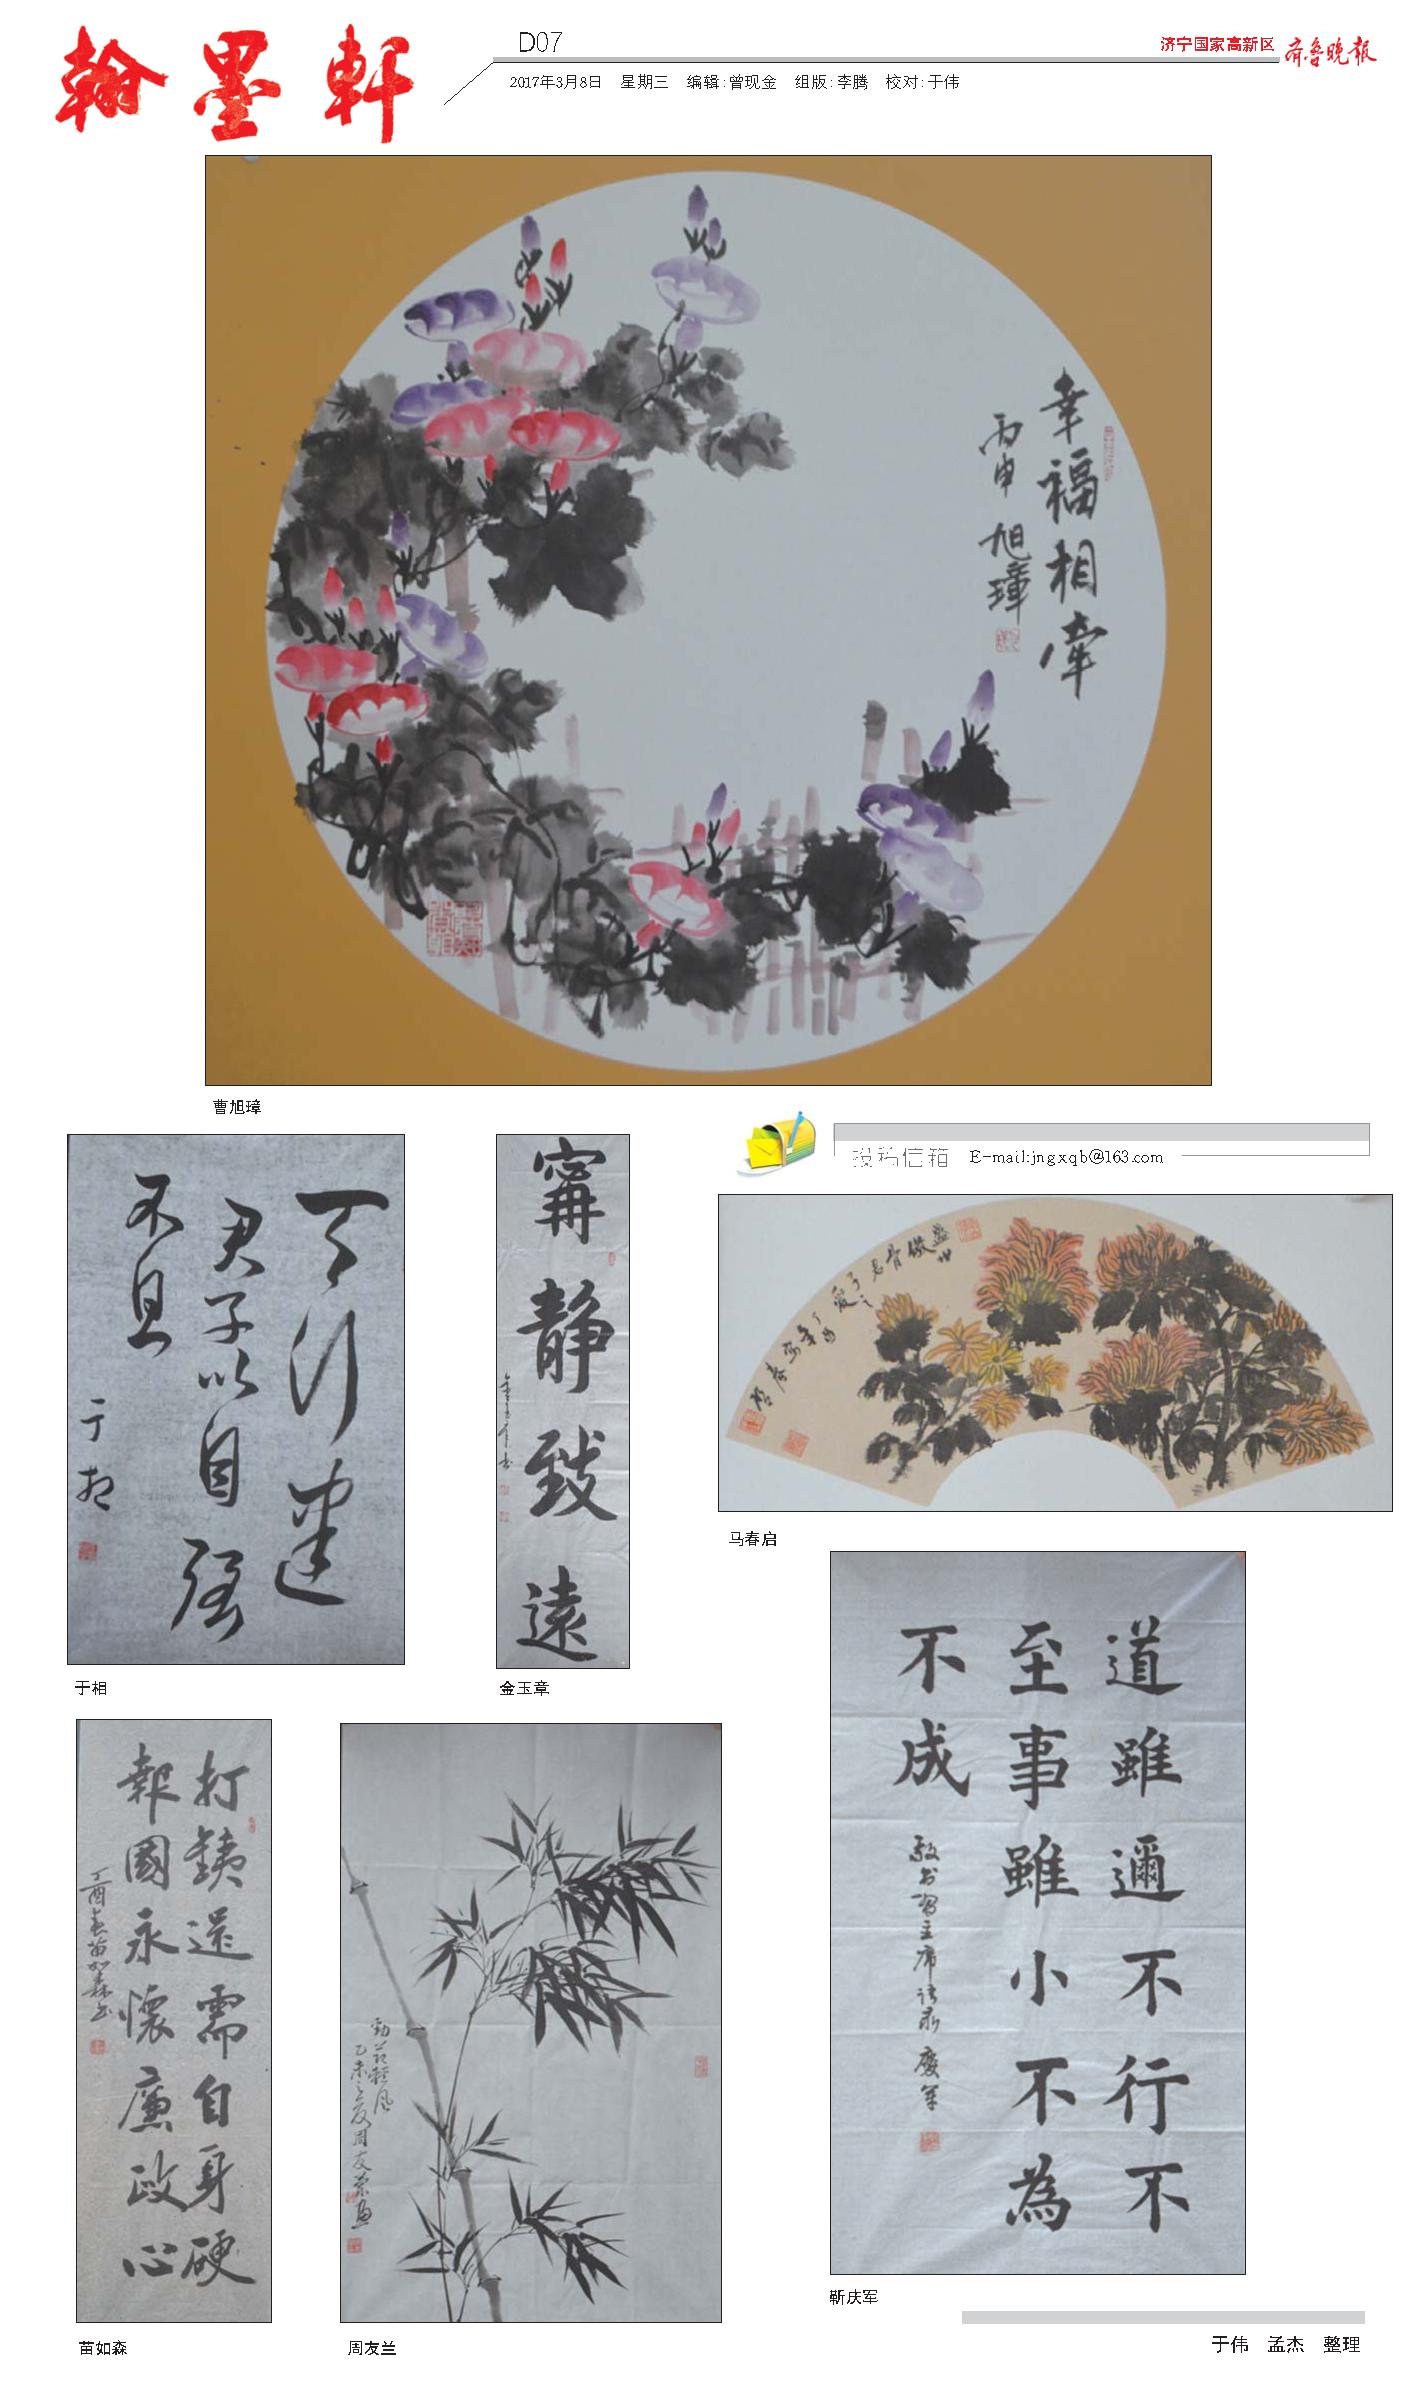 翰墨軒
D07
2017年3月8日 星期三 编辑:曾现金 组版:李腾 校对:于伟
济宁国家高新区 齐鲁晚报
幸福相牵
丙申 旭璋
曹旭璋
投稿信箱 E-mail:jngxqb@163.com
天行建
君子以自强
不息
于相
于相
甯静致遠
金玉章
马春启
打鐵還需自身硬
報國永懷廉政心
丁酉春苗如森书
苗如森
勁节輕风
乙未之夏周友兰画
周友兰
道雖邇不行不
至事雖小不為
不成
敬书习主席语录 慶軍
靳庆军
于伟 孟杰 整理